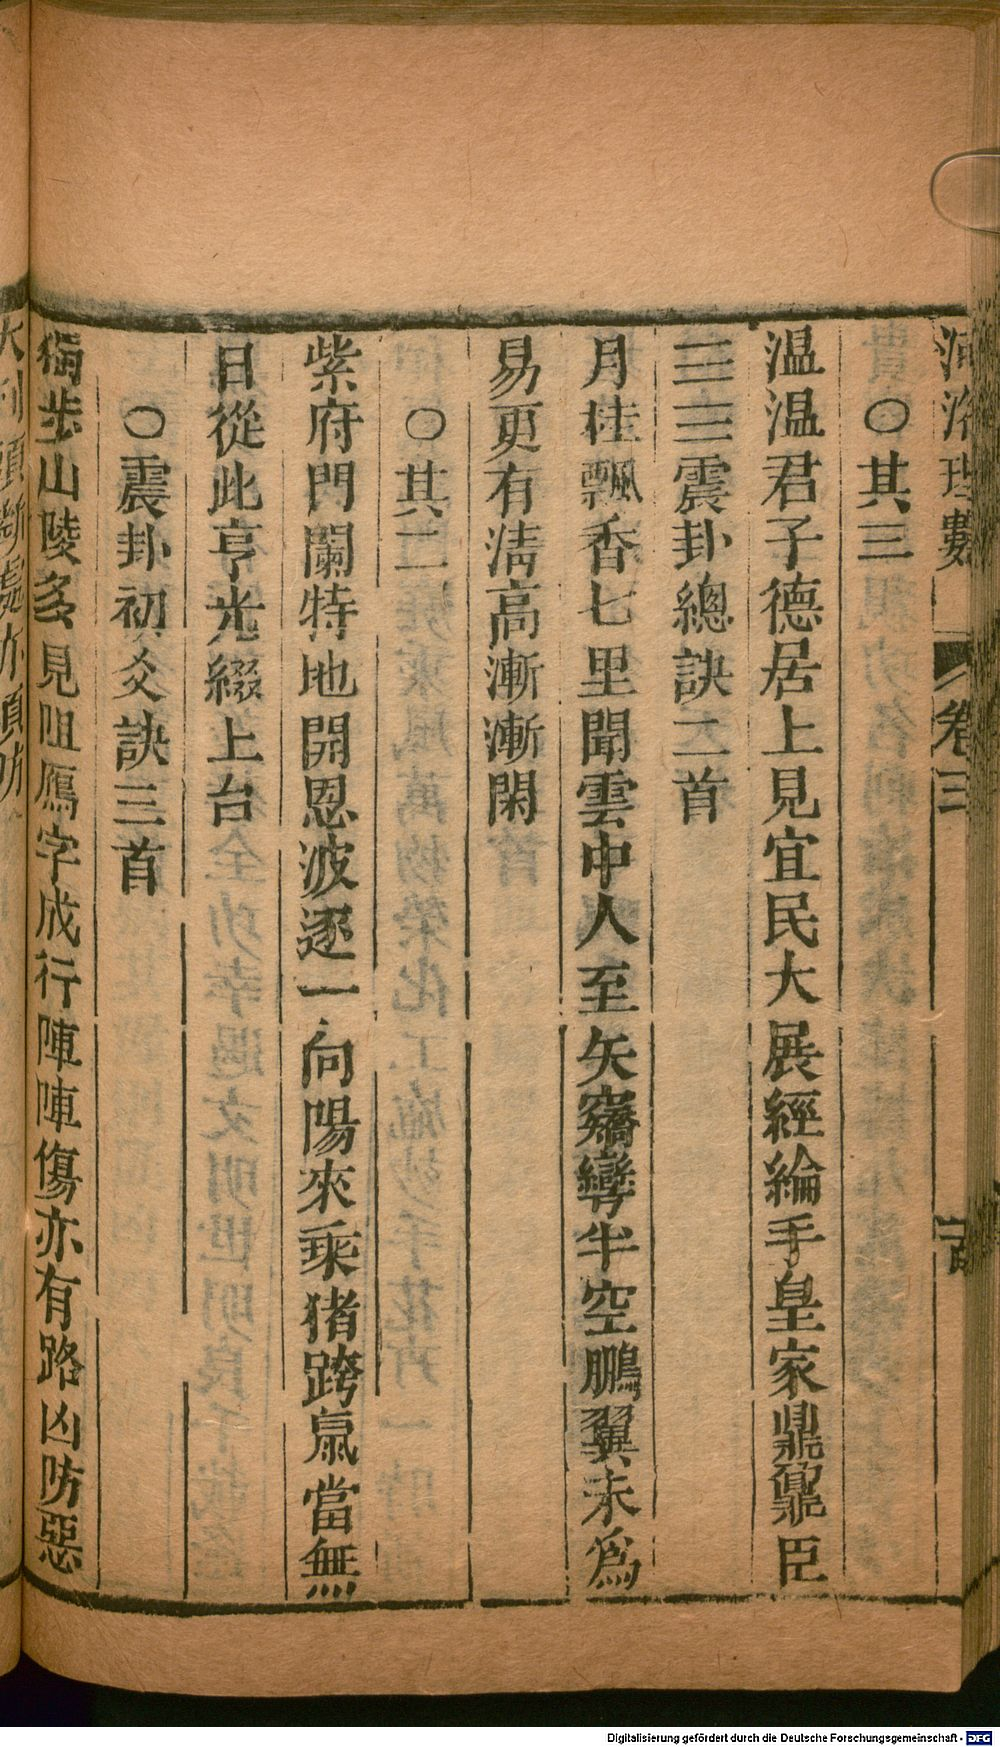 河洛理數 卷三
○其三
温温君子德居上見宜民大展經綸手皇家鼎鼐臣
☳☳震卦總訣二首
月桂飄香七里聞雲中人至矢竊彎半空鵬翼未爲
易更有清高漸漸閑
○其二
紫府門闌特地開恩波逐一向陽來乘猪跨䑕當無
日從此亨光綴上台
○震卦初爻訣三首
獨步山陵多見阻鴈字成行陣陣傷亦有路凶防惡
Digitalisierung gefördert durch die Deutsche Forschungsgemeinschaft - DFG